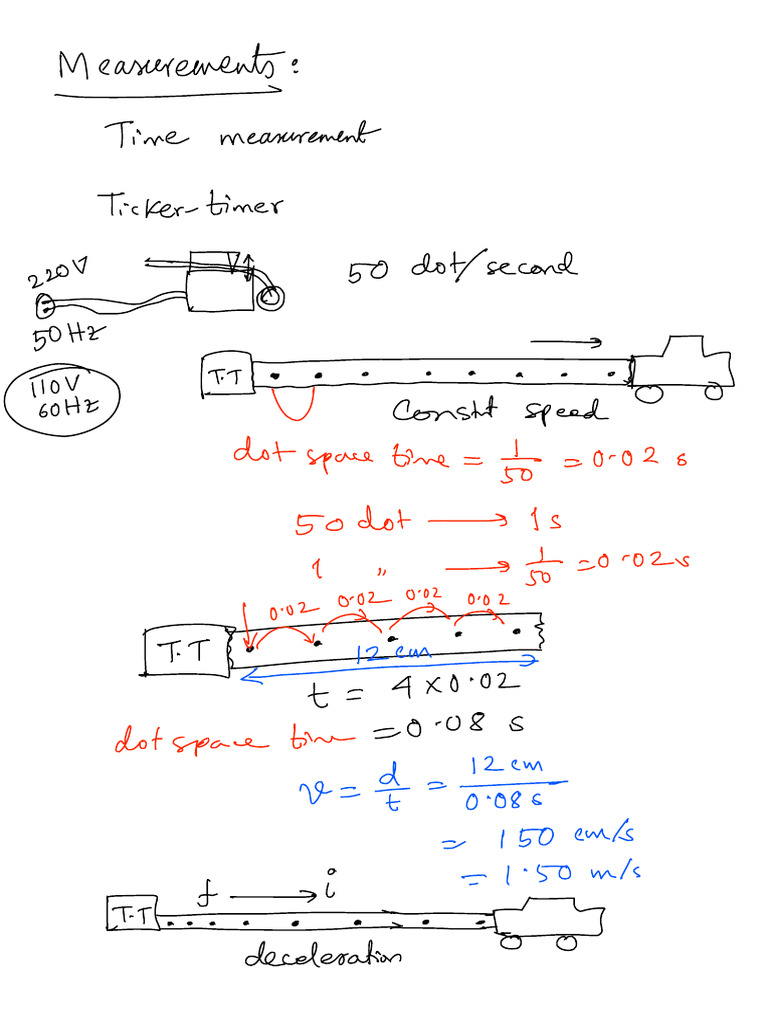 Measurements:
Time measurement
Ticker-timer
220V
50Hz
50 dot/second
110V
60Hz
T.T
Constt speed
dot space time = 1/50 = 0.02 s
50 dot → 1s
1 " → 1/50 = 0.02s
0.02 0.02 0.02 0.02
T.T
12 cm
t = 4 × 0.02
dot space time = 0.08 s
v = d/t = 12 cm/0.08 s
= 150 cm/s
= 1.50 m/s
f → i
T.T
deceleration